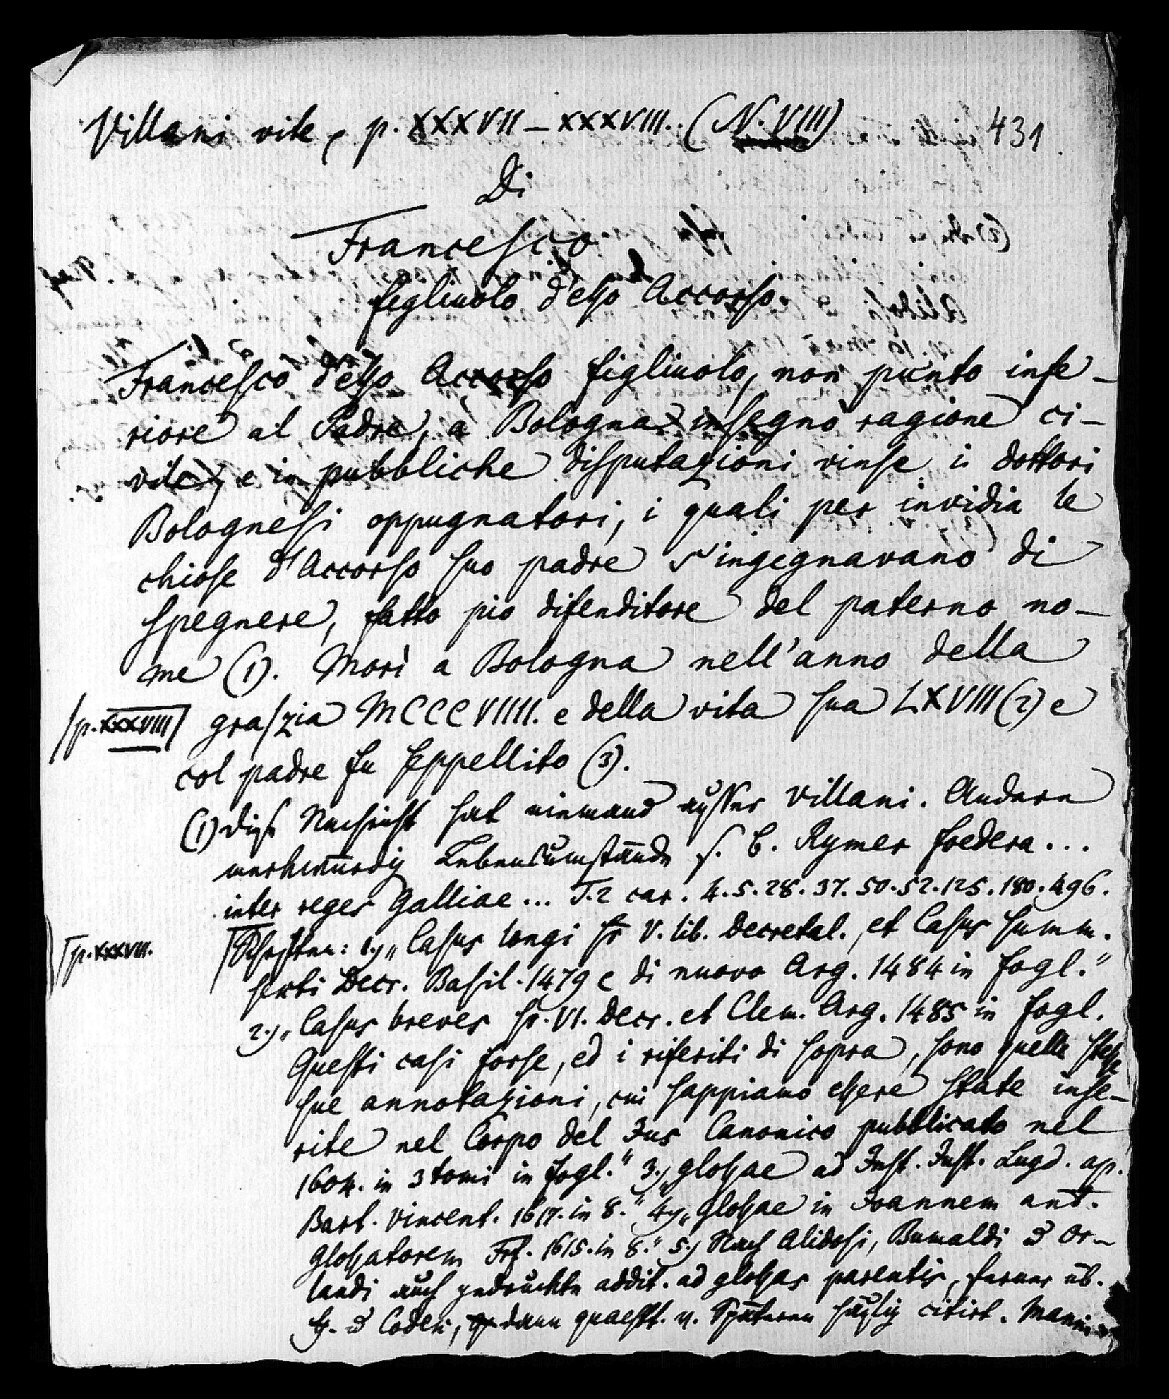 Villani vite, p. XXXVII – XXXVIII. (N. VIII) 431
Di
Francesco
figliuolo d'esso Accorso.
Francesco d'esso Accorso figliuolo, non punto infe-
riore al Padre, a Bologna insegnò ragione ci-
vile, e in pubbliche disputazioni vinse i dottori
Bolognesi oppugnatori, i quali per invidia le
chiose d'Accorso suo padre s'ingegnavano di
spegnere, fatto pio difenditore del paterno no-
me (1). Morì a Bologna nell'anno della
[p. XXXVIII] grazia MCCCVIIII. e della vita sua LXVIII (2) e
col padre fu seppellito (3).
(1) Diese Nachricht hat niemand ausser Villani. Andere
merkwürdig Lebensumstände s. b. Rymer foedera ...
inter reges Galliae ... T. 2 car. 4. 5. 28. 37. 50. 52. 125. 180. 496.
[p. XXXVII. Schriften: 1.) „Casus longi V. lib. decretal. et Casus summ.
sexti Decr. Basil. 1479 e di nuovo Arg. 1484 in fogl."
2.) „Casus breves VI. Decr. et Clem. Arg. 1485 in fogl.
Questi casi forse, ed i riferiti di sopra, sono quelle stesse
sue annotazioni, cui sappiamo essere state inse-
rite nel Corpo del Jus Canonico pubblicato nel
1604. in 3 tomi in fogl." 3.) glossae ad Inst. Just. Lugd. ap.
Bart. Vincent. 1617. in 8." 4.) „Glossae in Joannem ant.
glossatorem Frf. 1615. in 8." 5.) Nach Alidosi, Bumaldi & Or-
landi auch gedruckte addit. ad glossas parentis, ferner üb.
ff. & Codex, dann quaestt. v. Späteren häufig citirt.